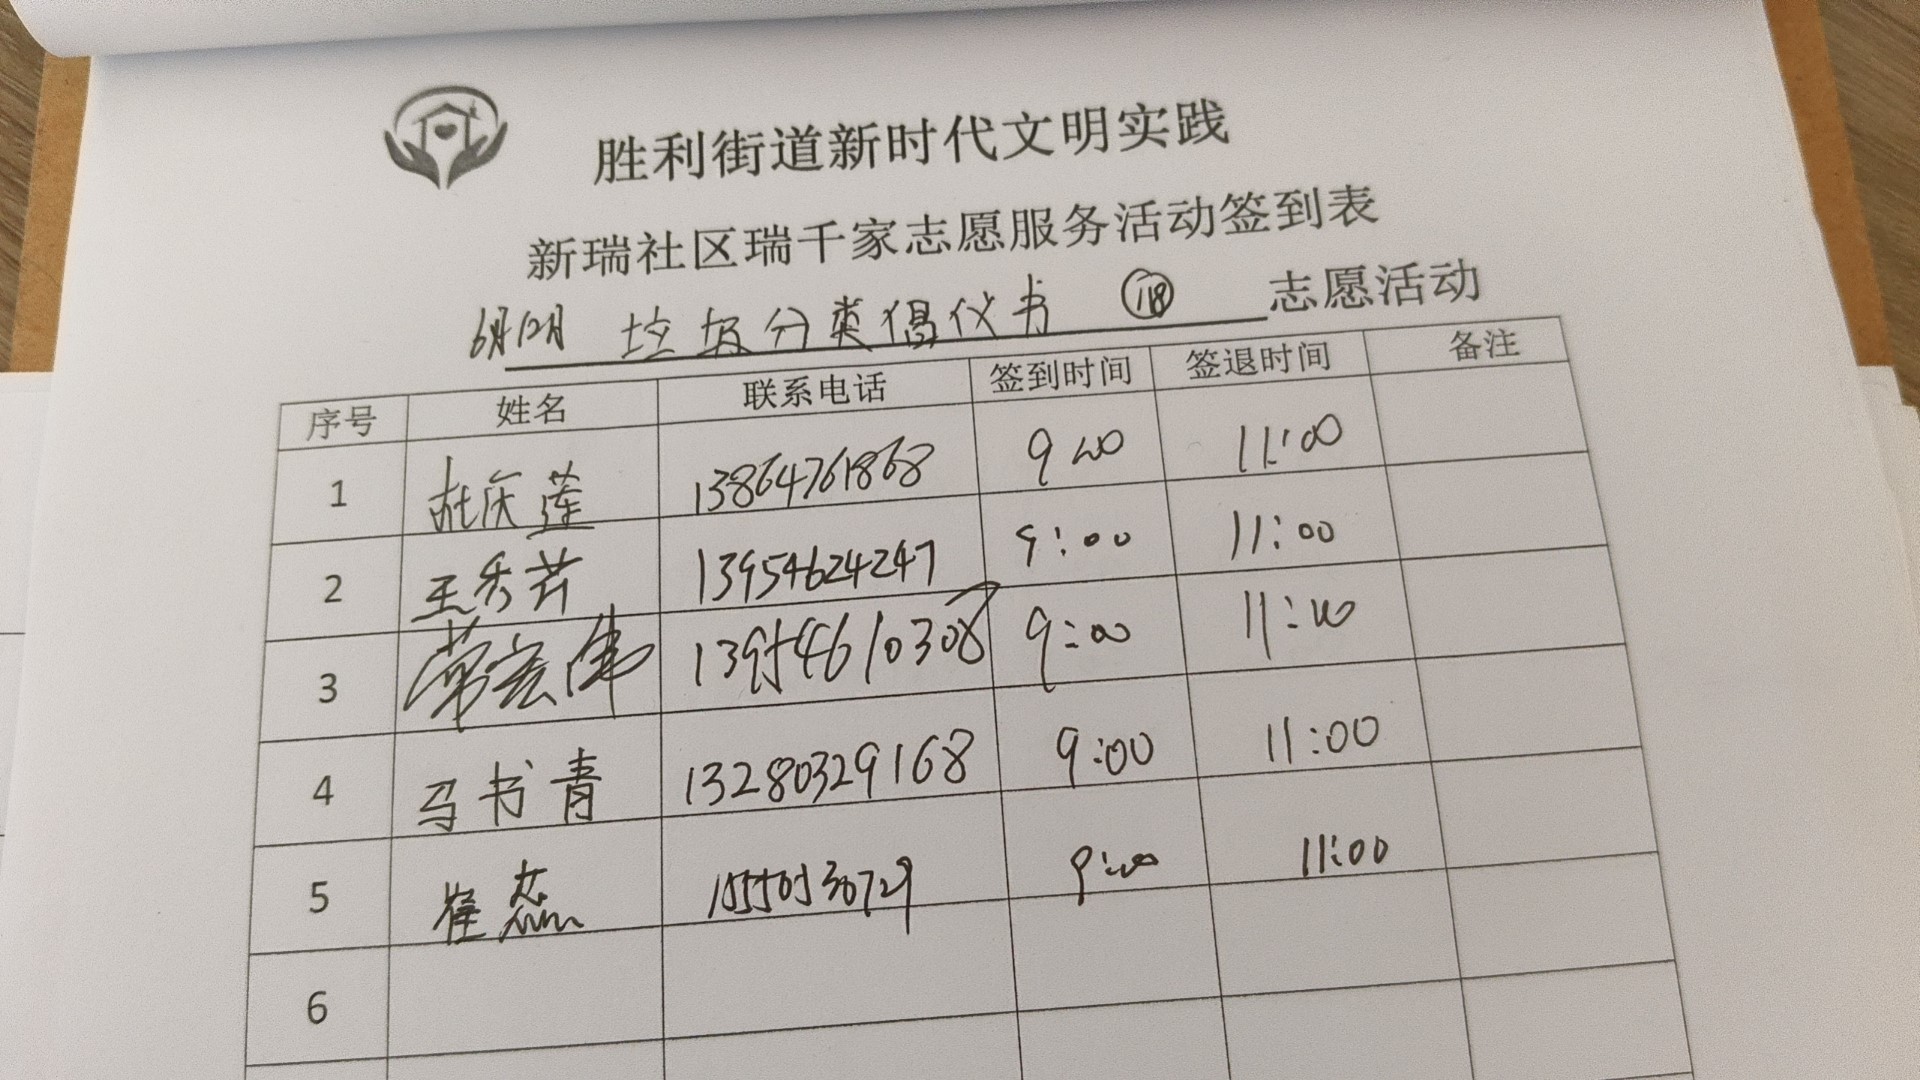 胜利街道新时代文明实践
新瑞社区瑞千家志愿服务活动签到表
6月12月 垃圾分类倡仪书 志愿活动
序号 姓名 联系电话 签到时间 签退时间 备注
1 杜庆莲 13864761868 9:00 11:00
2 王秀芹 13954624247 9:00 11:00
3 13954610308 9:00 11:00
4 马书青 13280329168 9:00 11:00
5 崔蕊 15550530729 9:00 11:00
6